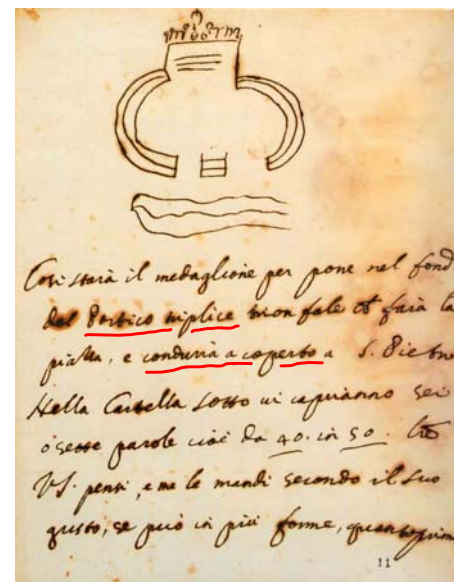 Così starà il medaglione per pone nel fond
del Portico triplice trionfale ch farà la
piazza, e condurià a coperto a S. Pietro
Nella Cartella sotto vi capiranno sei
ò sette parole cioè da 40. in 50.
VS. pensi, e me le mandi secondo il suo
gusto, se può in più forme, quanto prim
11